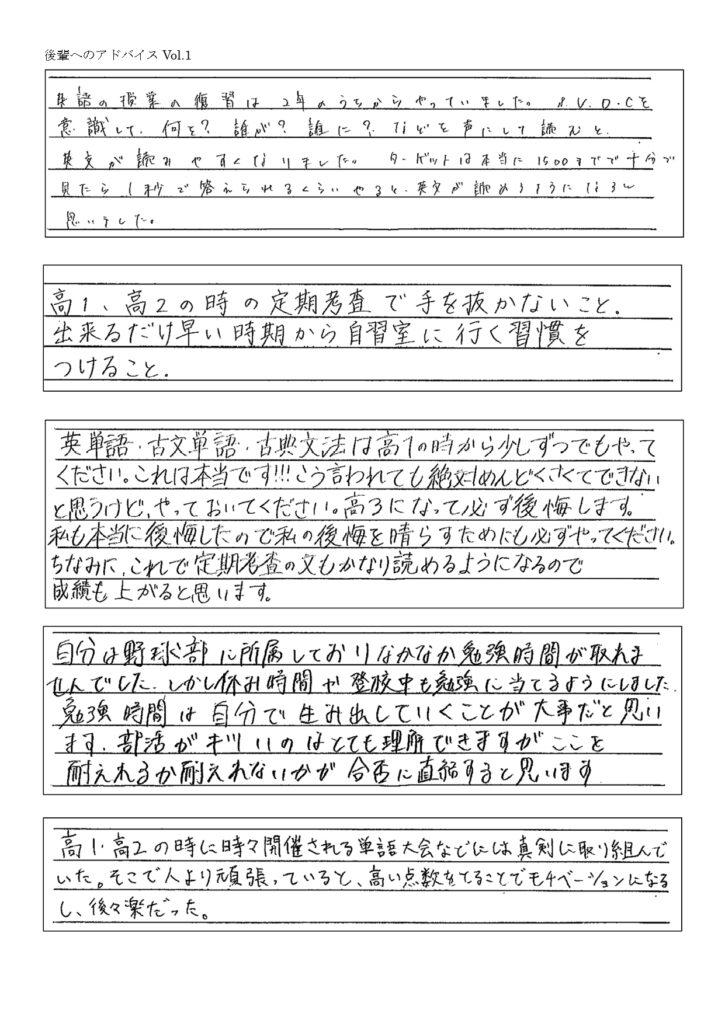 後輩へのアドバイス Vol.1
英語の授業の復習は2年のうちからやっていました。S.V.O.Cを
意識して、何を?誰が?誰に?などを声にして読むと、
英文が読みやすくなりました。ターゲットは本当に1500までで十分で
見たら1秒で答えられるくらいやると、英文が読めるようになると
思いました。
高1、高2の時の定期考査で手を抜かないこと.
出来るだけ早い時期から自習室に行く習慣を
つけること.
英単語・古文単語・古典文法は高1の時から少しずつでもやって
ください。これは本当です!!!こう言われても絶対めんどくさくてできない
と思うけど、やっておいてください。高3になって必ず後悔します。
私も本当に後悔したので私の後悔を晴らすためにも必ずやってください。
ちなみに、これで定期考査の文もかなり読めるようになるので
成績も上がると思います。
自分は野球部に所属しておりなかなか勉強時間が取れま
せんでした.しかし休み時間や登校中も勉強に当てるようにしました.
勉強時間は自分で生み出していくことが大事だと思い
ます.部活がキツいのはとても理解できますがここを
耐えれるか耐えれないかが合否に直結すると思います
高1・高2の時に時々開催される単語大会などには真剣に取り組んで
いた。そこで人より頑張っていると、高い点数をとることでモチベーションになる
し、後々楽だった。